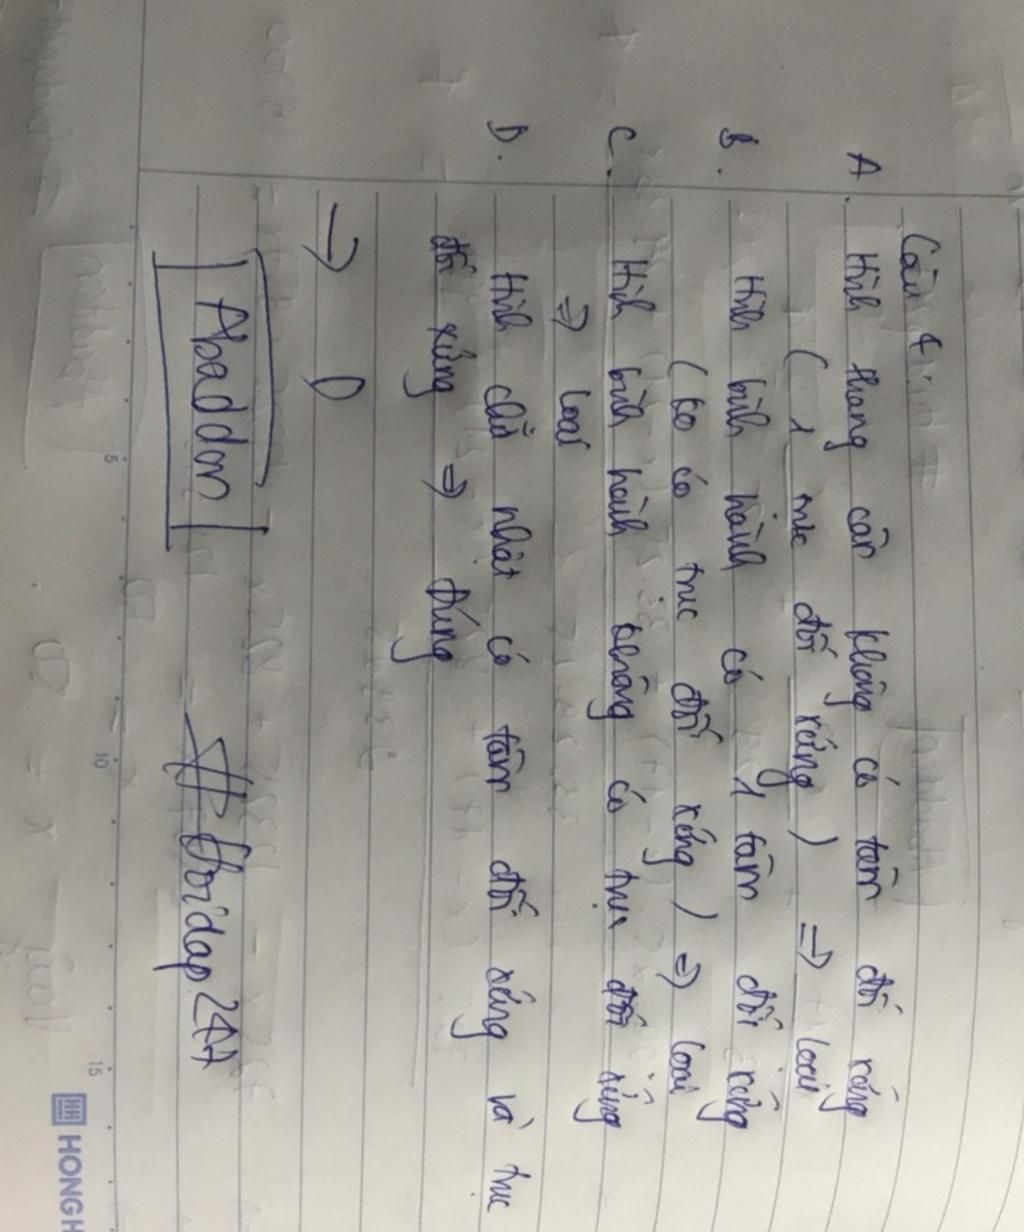 Câu 4:
A. Hình thang cân không có tâm đối xứng
( 1 trục đối xứng ) => loại
B. Hình bình hành có 1 tâm đối xứng
( ko có trục đối xứng ) => loại
C. Hình bình hành không có trục đối xứng
=> loại
D. Hình chữ nhật có tâm đối xứng và trục
đối xứng => Đúng
→ D
Abaddon
#Hoidap247
5
10
15
HH HONGH